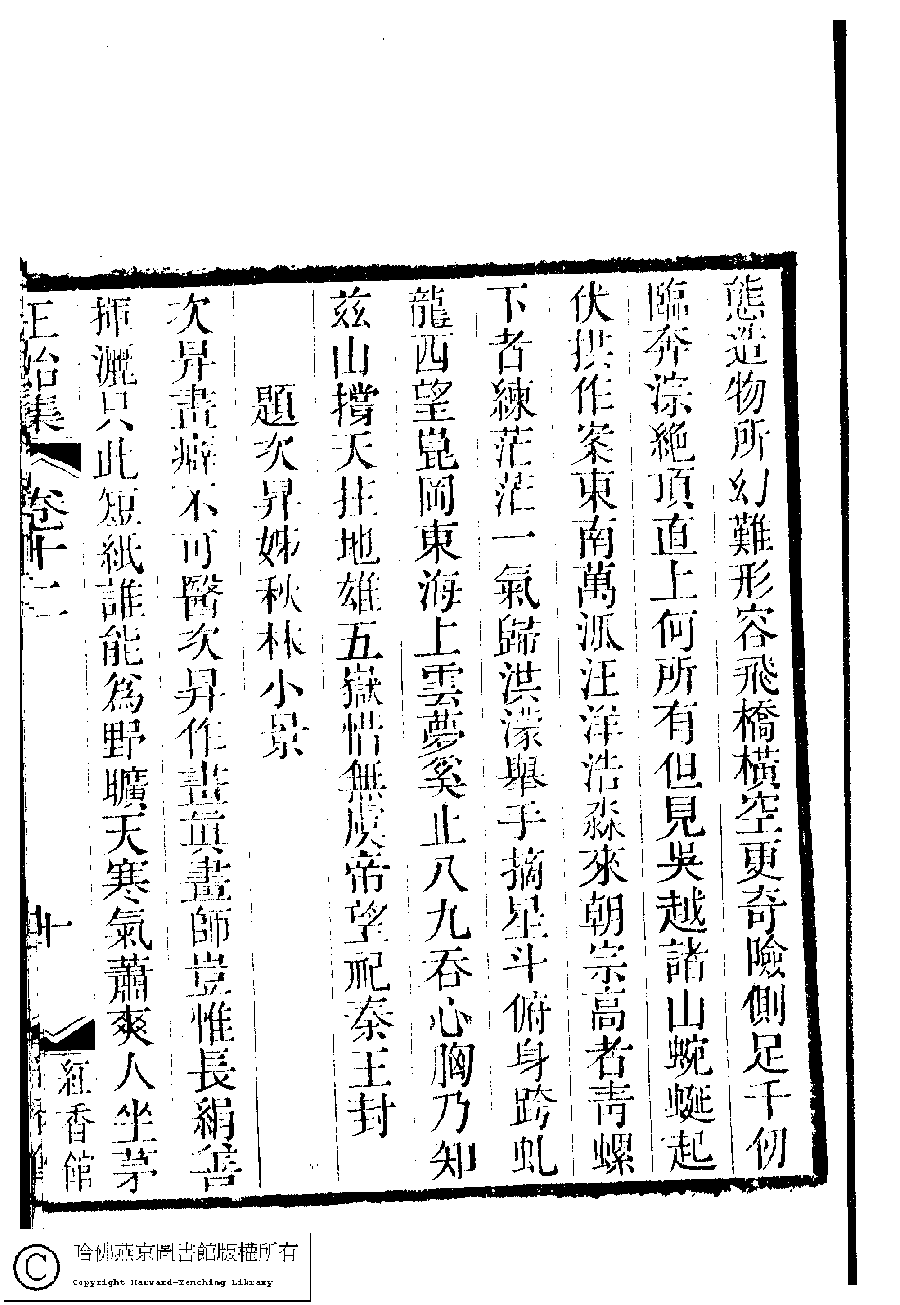 態造物所幻難形容飛橋橫空更奇險側足千仞
臨奔淙絶頂直上何所有但見吳越諸山蜿蜒起
伏拱作案東南萬派汪洋浩淼來朝宗高者靑螺
下者練茫茫一氣歸洪濛舉手摘星斗俯身跨虬
龍西望崑岡東海上雲夢奚止八九吞心胸乃知
兹山撐天拄地雄五嶽惜無虞帝望祀秦王封
題次昇姊秋林小景
次昇畫癖不可醫次昇作畫眞畫師豈惟長絹善
揮灑只此短紙誰能爲野曠天寒氣蕭爽人坐茅
正始集 卷十二 十 紅香館
哈佛燕京圖書館版權所有
Copyright Harvard-Yenching Library